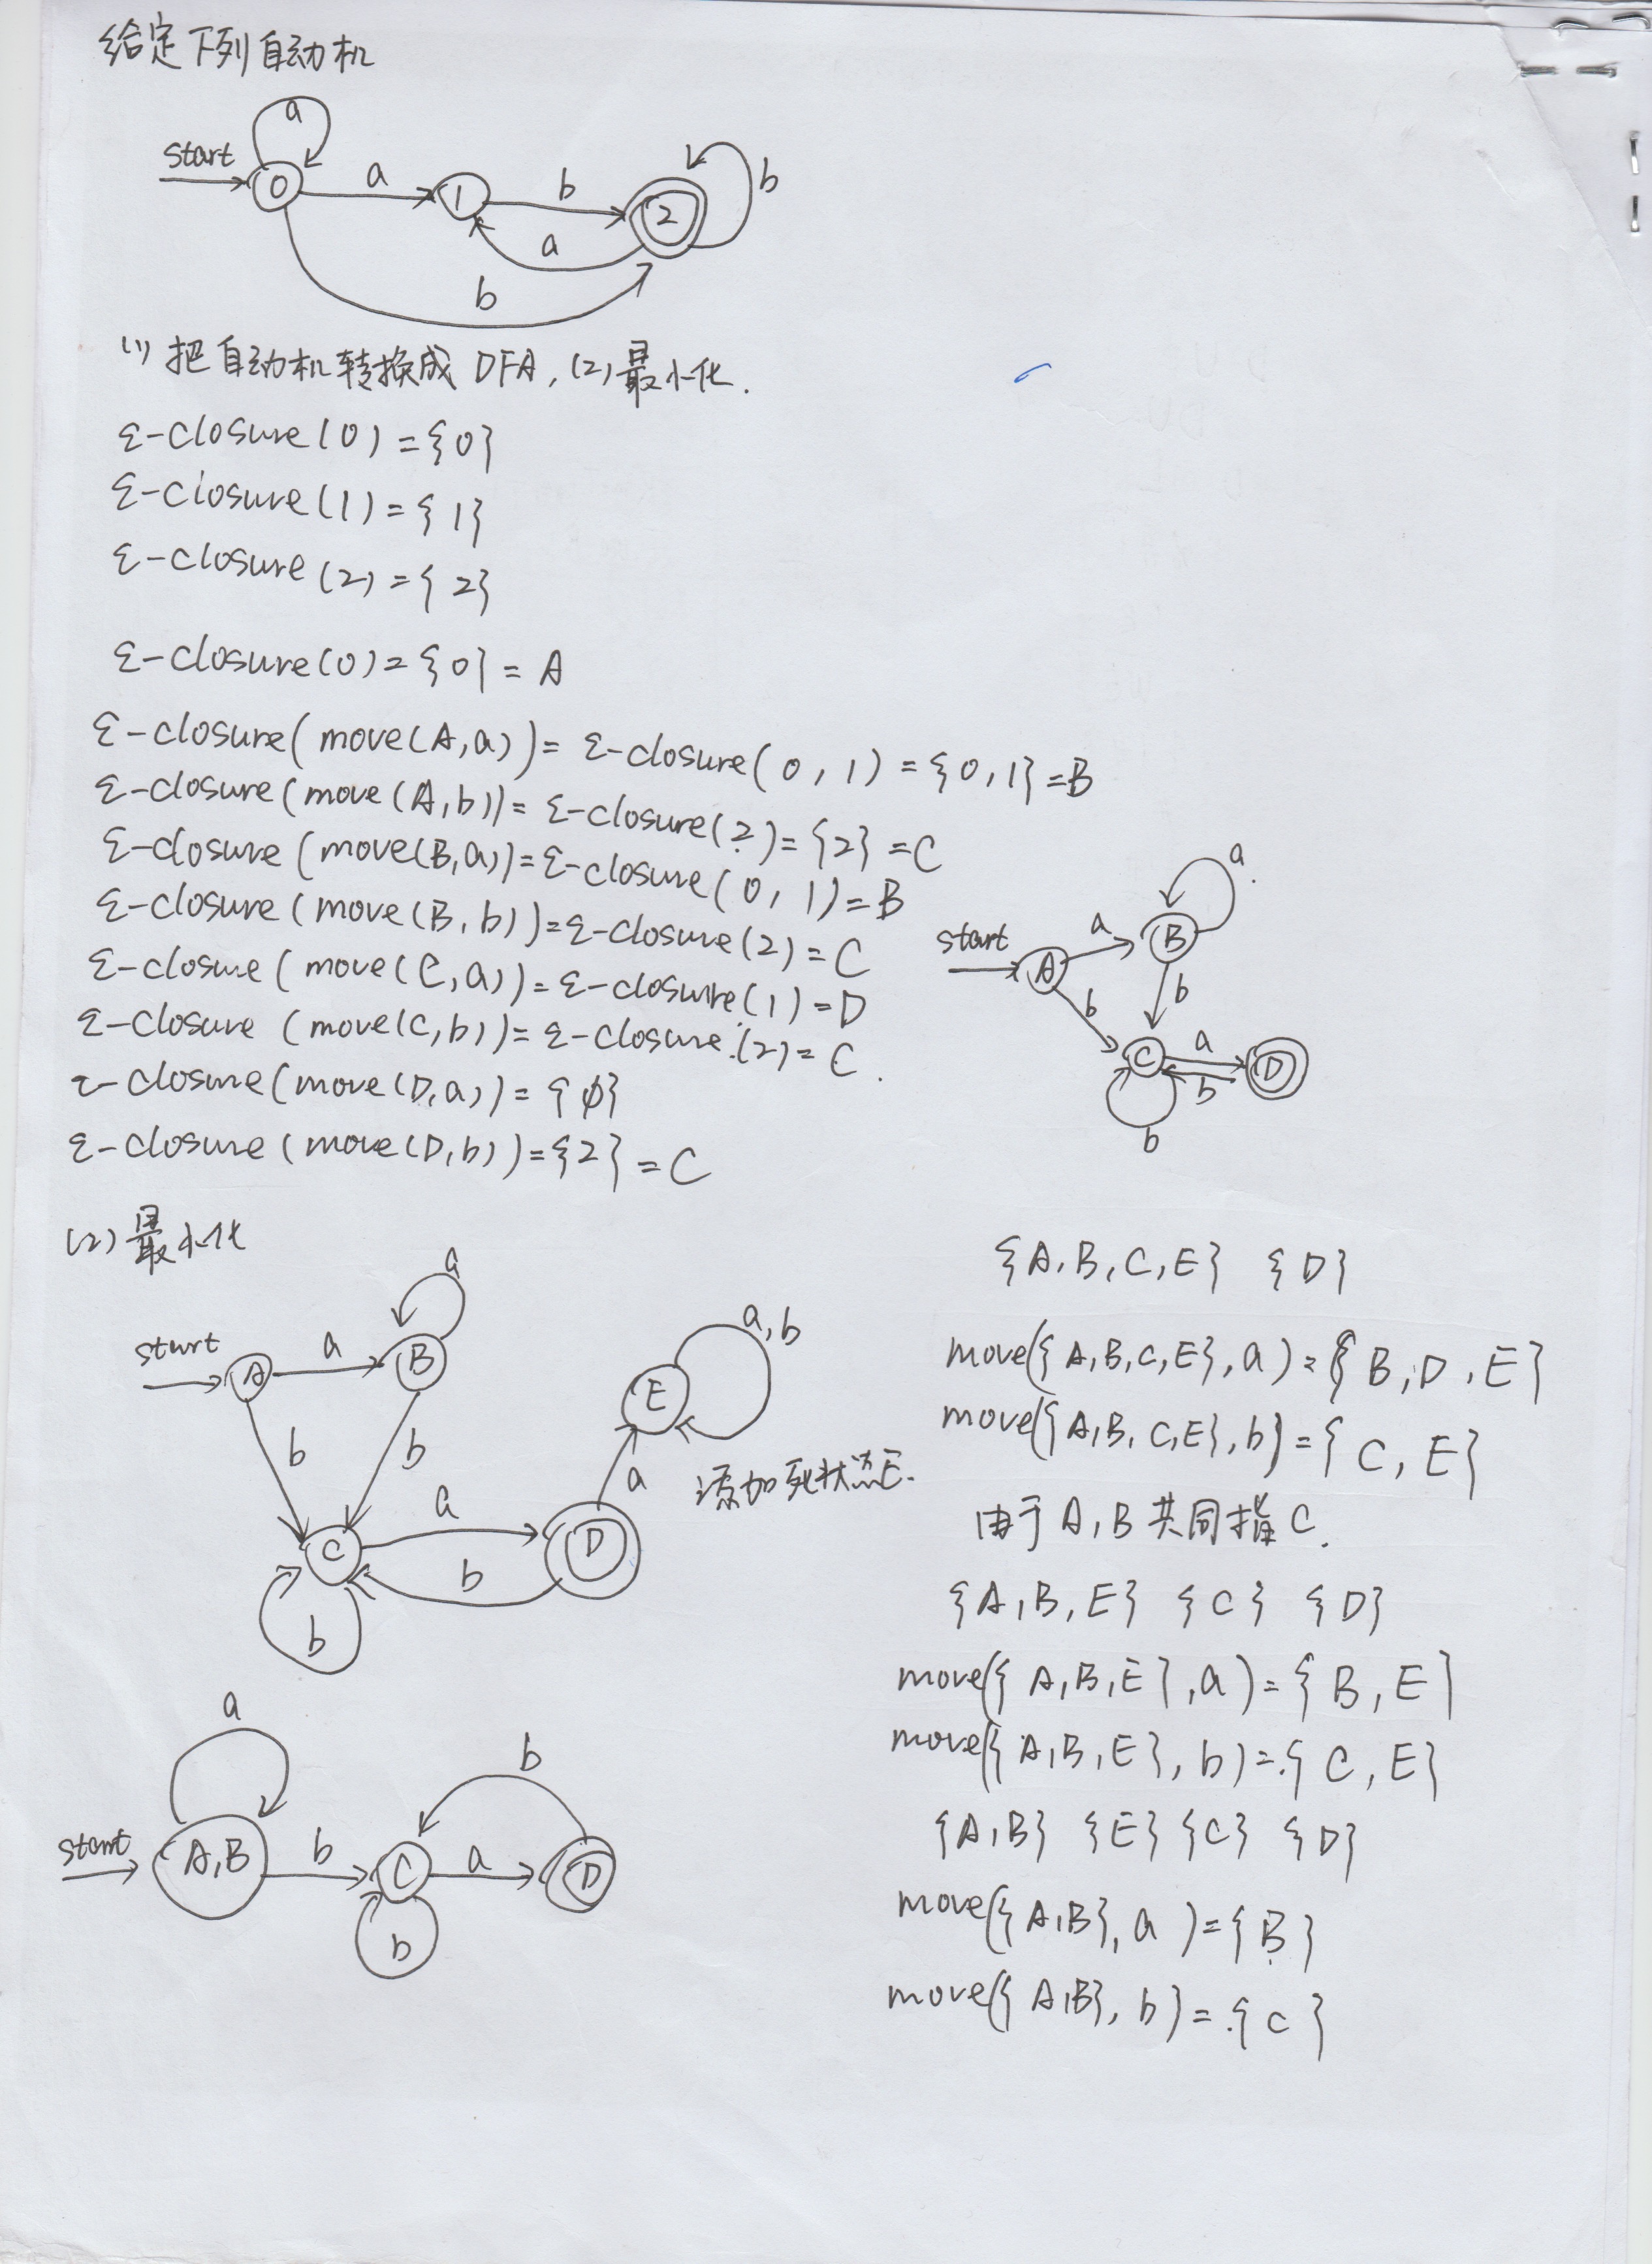 给定下列自动机
a
start
0 a 1 b 2 b
a
b
(1) 把自动机转换成 DFA, (2) 最小化.
ε-closure(0) = {0}
ε-closure(1) = {1}
ε-closure(2) = {2}
ε-closure(0) = {0} = A
ε-closure(move(A,a)) = ε-closure(0,1) = {0,1} = B
ε-closure(move(A,b)) = ε-closure(2) = {2} = C
ε-closure(move(B,a)) = ε-closure(0,1) = B
ε-closure(move(B,b)) = ε-closure(2) = C
ε-closure(move(C,a)) = ε-closure(1) = D
ε-closure(move(C,b)) = ε-closure(2) = C.
ε-closure(move(D,a)) = {ϕ}
ε-closure(move(D,b)) = {2} = C
a
start A a B
b b
C a D
b
b
(2) 最小化
a
start A a B
b b
E a,b
a
添加死状态E.
C a D
b
b
a
start A,B b C a D
b
b
{A,B,C,E} {D}
move({A,B,C,E},a) = {B,D,E}
move({A,B,C,E},b) = {C,E}
由于A,B共同指C.
{A,B,E} {C} {D}
move({A,B,E},a) = {B,E}
move({A,B,E},b) = {C,E}
{A,B} {E} {C} {D}
move({A,B},a) = {B}
move({A,B},b) = {C}